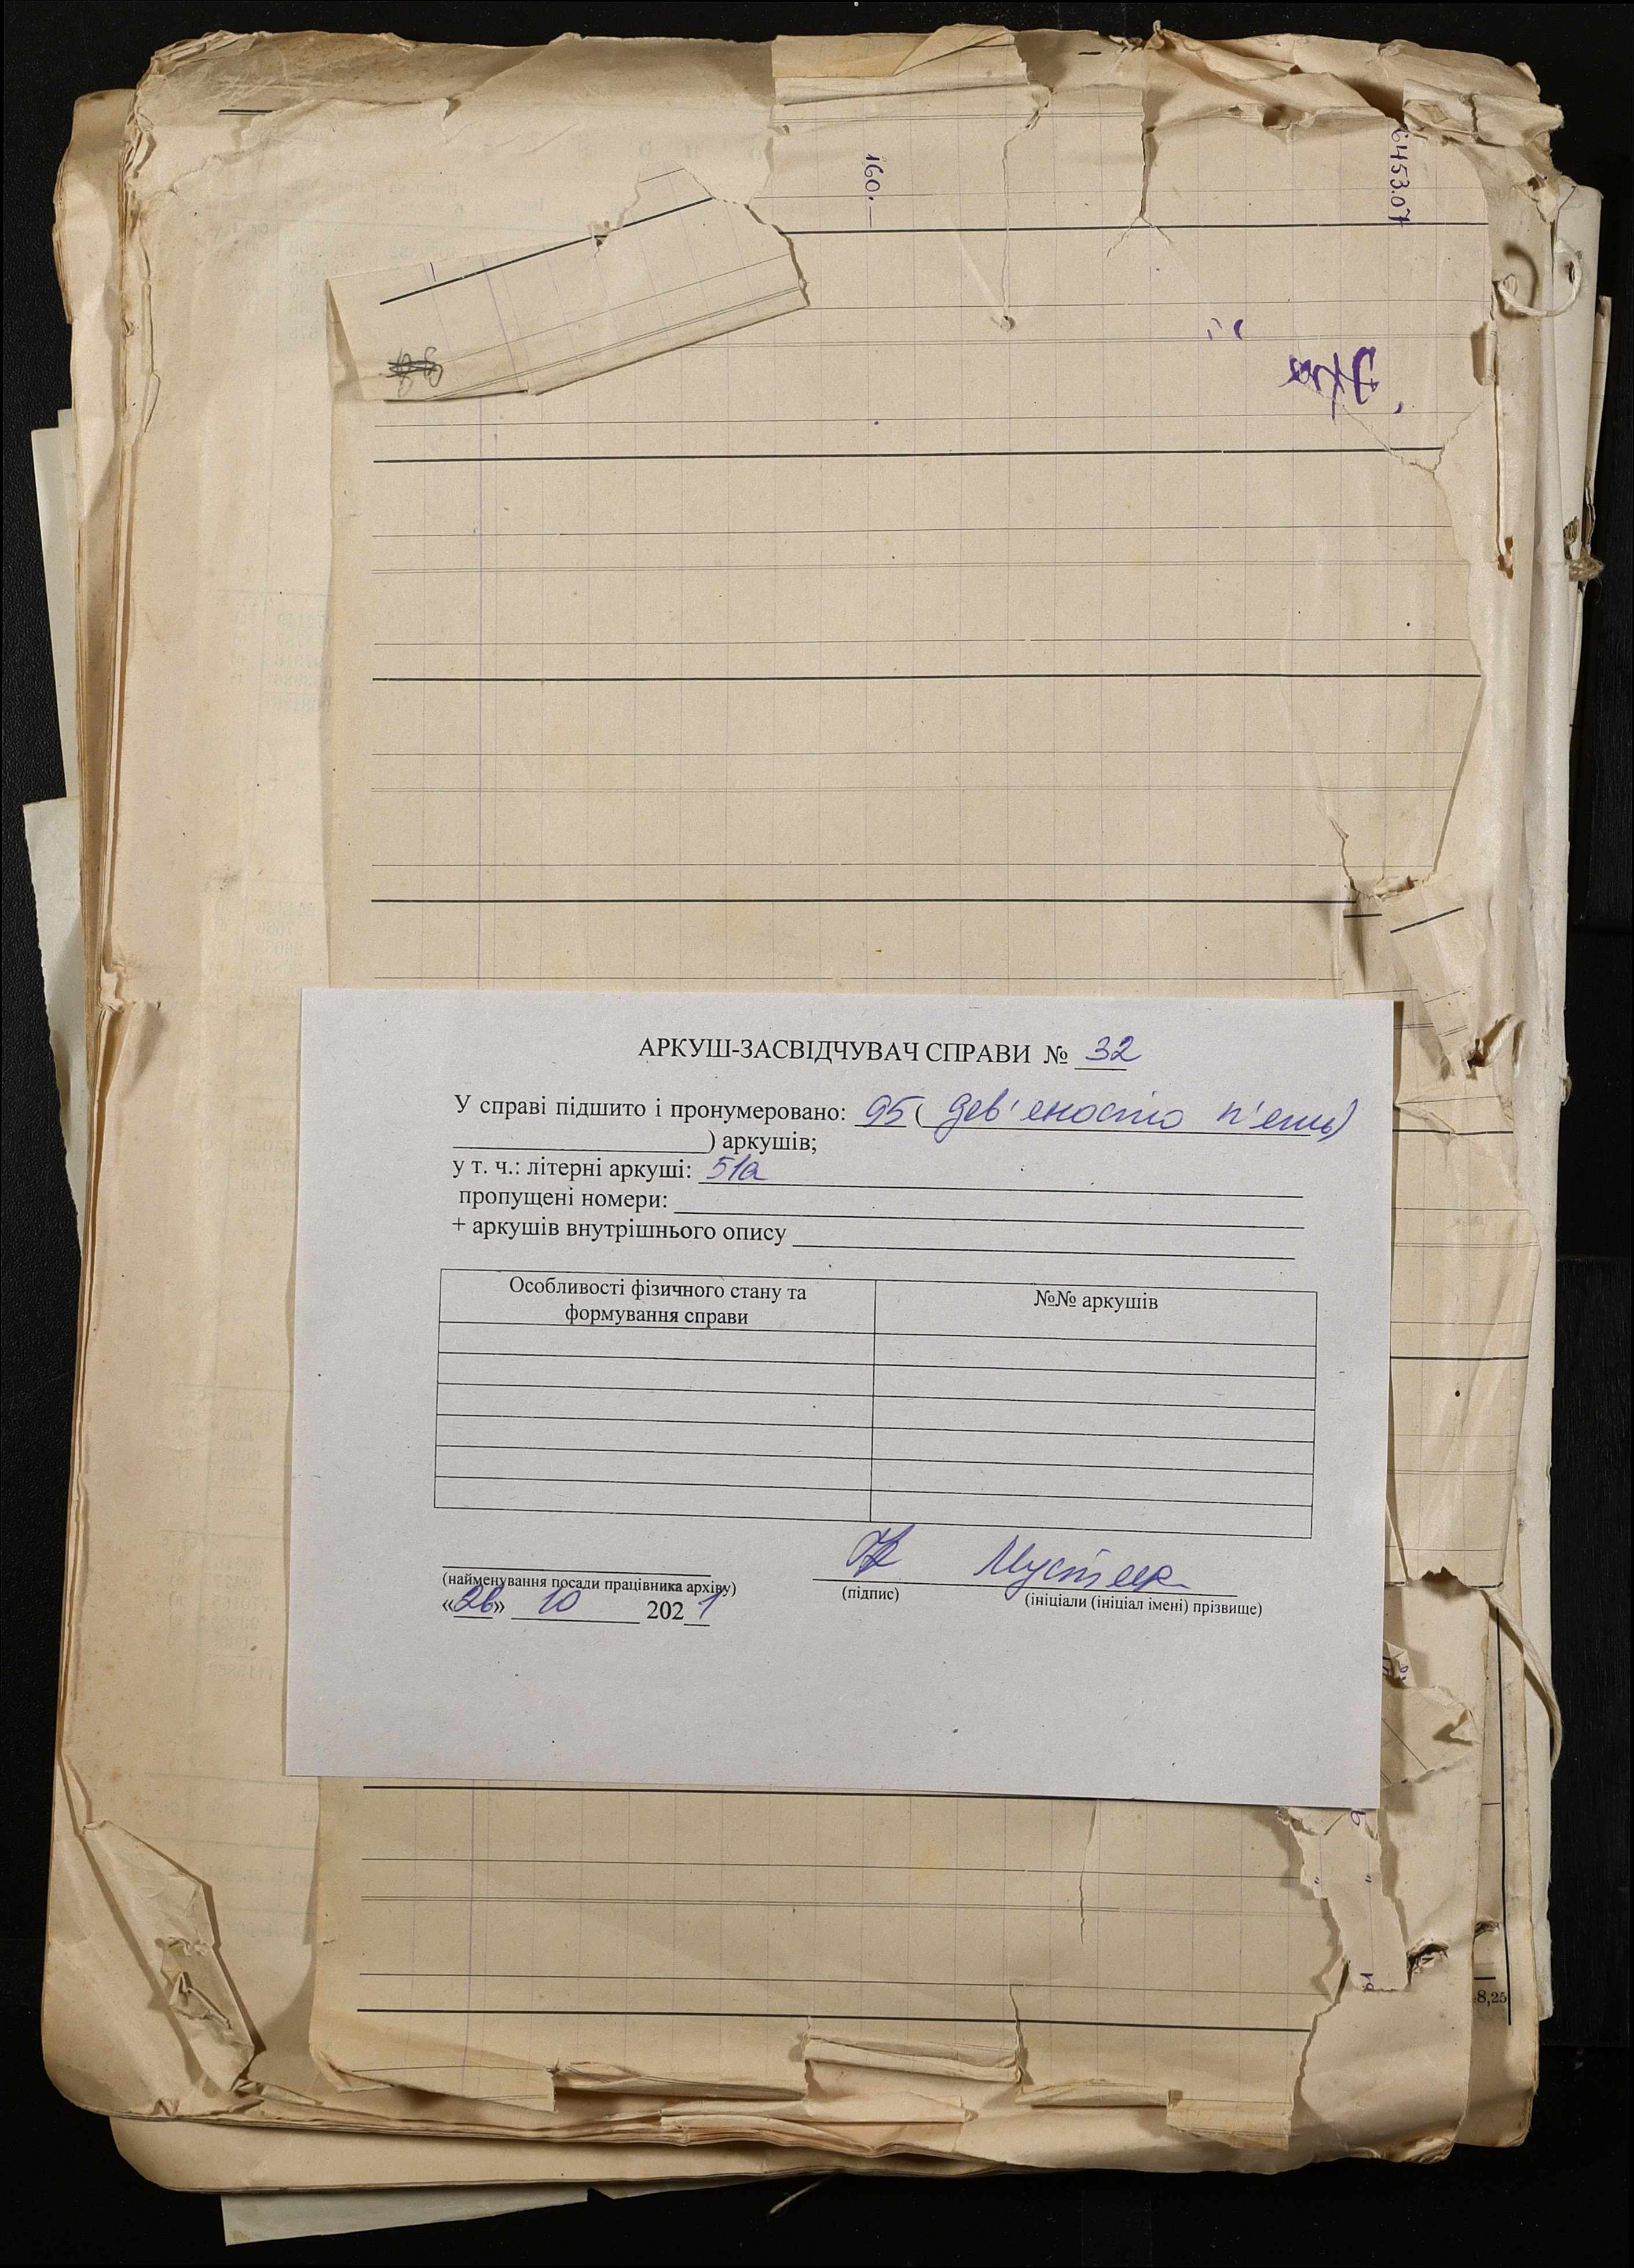 160.—
6453.07
АРКУШ-ЗАСВІДЧУВАЧ СПРАВИ № 32
У справі підшито і пронумеровано: 95 ( дев'яносто п'ять)
) аркушів;
у т. ч.: літерні аркуші: 51а
пропущені номери:
+ аркушів внутрішнього опису
Особливості фізичного стану та
формування справи
№№ аркушів
(найменування посади працівника архіву)
(підпис)
(ініціали (ініціал імені) прізвище)
«26» 10 2021
8,25